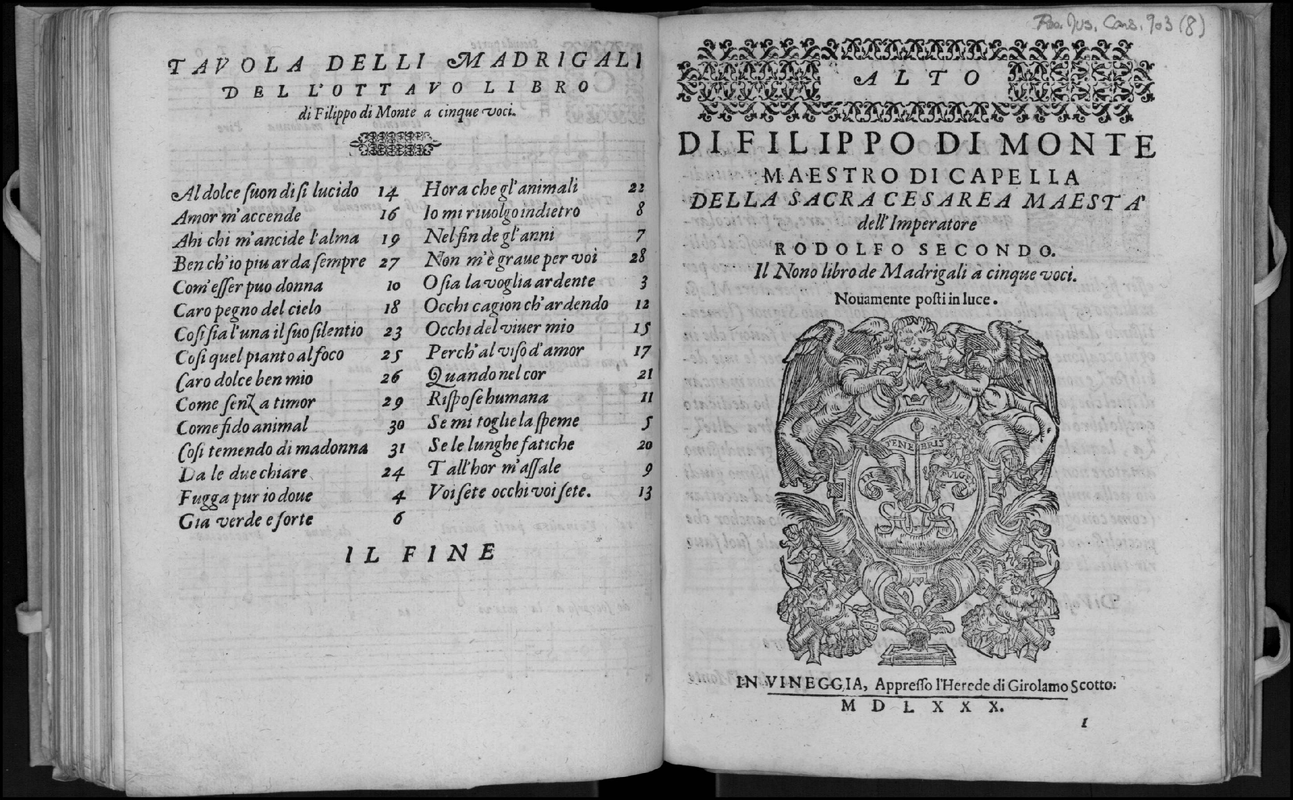 TAVOLA DELLI MADRIGALI
DELL'OTTAVO LIBRO
di Filippo di Monte a cinque voci.
Al dolce ſuon di ſi lucido 14
Amor m'accende 16
Ahi chi m'ancide l'alma 19
Ben ch'io piu arda ſempre 27
Com'eſſer puo donna 10
Caro pegno del cielo 18
Coſi ſia l'una il ſuo ſilentio 23
Coſi quel pianto al foco 25
Caro dolce ben mio 26
Come ſenza timor 29
Come fido animal 30
Coſi temendo di madonna 31
Da le due chiare 24
Fugga pur io doue 4
Gia verde e forte 6
Hora che gl'animali 22
Io mi riuolgo indietro 8
Nel fin de gl'anni 7
Non m'è graue per voi 28
O ſia la voglia ardente 3
Occhi cagion ch'ardendo 12
Occhi del viuer mio 15
Perch'al viſo d'amor 17
Quando nel cor 21
Riſpoſe humana 11
Se mi toglie la ſpeme 5
Se le lunghe fatiche 20
Tall'hor m'aſſale 9
Voi ſete occhi voi ſete. 13
IL FINE
Mus. Cans. 903 (8)
ALTO
DI FILIPPO DI MONTE
MAESTRO DI CAPELLA
DELLA SACRA CESAREA MAESTA'
dell'Imperatore
RODOLFO SECONDO.
Il Nono libro de Madrigali a cinque voci.
Nouamente poſti in luce.
IN TENEBRIS FVLGET
SOS
IN VINEGGIA, Appreſſo l'Herede di Girolamo Scotto.
MDLXXX.
1